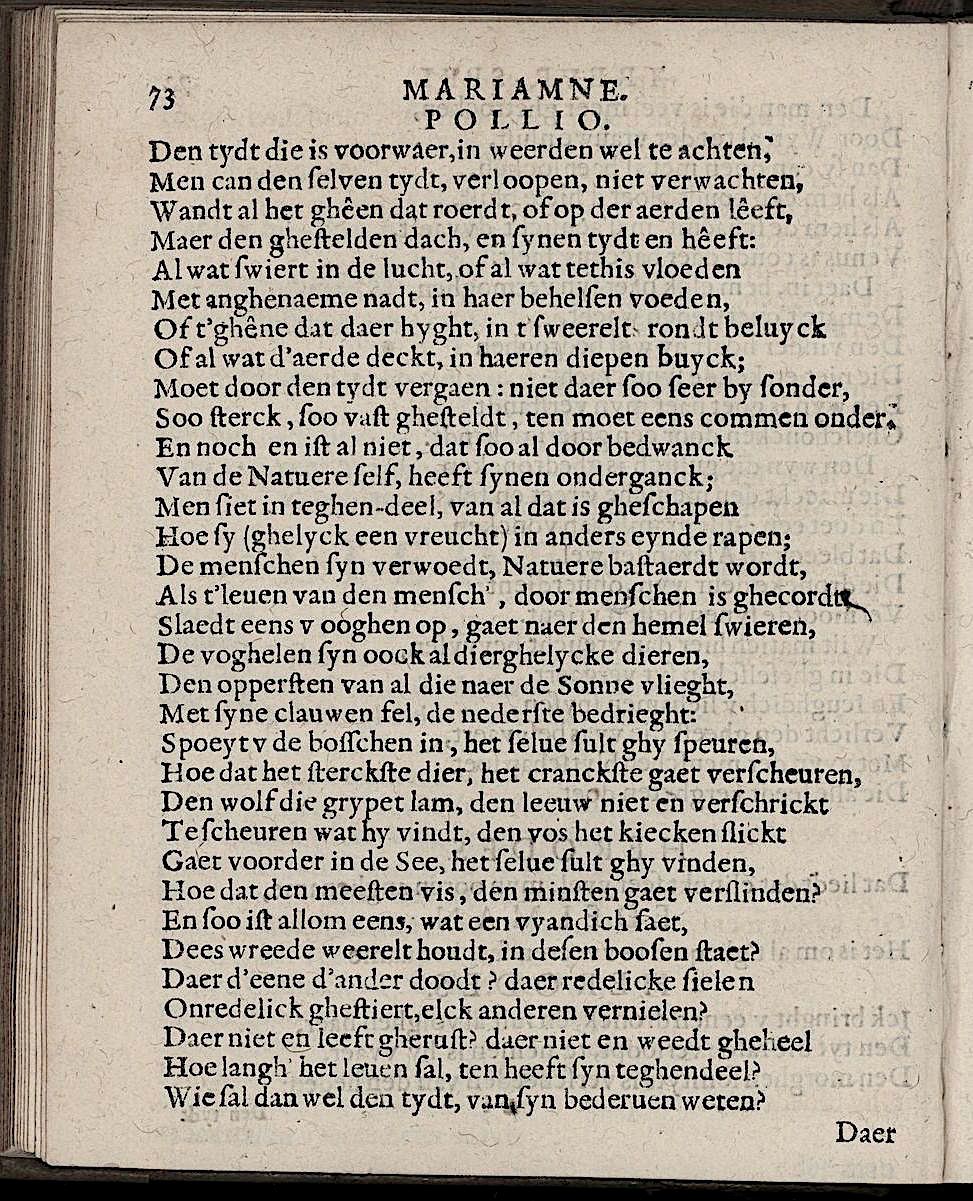 73 MARIAMNE.
POLLIO.
Den tydt die is voorwaer, in weerden wel te achten,
Men can den ſelven tydt, verloopen, niet verwachten,
Wandt al het ghêen dat roerdt, of op der aerden lêeft,
Maer den gheſtelden dach, en ſynen tydt en hêeft:
Al wat ſwiert in de lucht, of al wat tethis vloeden
Met anghenaeme nadt, in haer behelſen voeden,
Of t'ghêne dat daer hyght, in t'ſweerelt rondt beluyck
Of al wat d'aerde deckt, in haeren diepen buyck;
Moet door den tydt vergaen : niet daer ſoo ſeer by ſonder,
Soo ſterck, ſoo vaſt gheſteldt, ten moet eens commen onder.
En noch en iſt al niet, dat ſoo al door bedwanck
Van de Natuere ſelf, heeft ſynen onderganck;
Men ſiet in teghen-deel, van al dat is gheſchapen
Hoe ſy (ghelyck een vreucht) in anders eynde rapen;
De menſchen ſyn verwoedt, Natuere baſtaerdt wordt,
Als t'leuen van den menſch', door menſchen is ghecordt
Slaedt eens v ooghen op, gaet naer den hemel ſwieren,
De voghelen ſyn oock al dierghelycke dieren,
Den opperſten van al die naer de Sonne vlieght,
Met ſyne clauwen fel, de nederſte bedrieght:
Spoeyt v de boſſchen in, het ſelue ſult ghy ſpeuren,
Hoe dat het ſterckſte dier, het cranckſte gaet verſcheuren,
Den wolf die grypet lam, den leeuw niet en verſchrickt
Te ſcheuren wat hy vindt, den vos het kiecken ſlickt
Gaet voorder in de See, het ſelue ſult ghy vinden,
Hoe dat den meeſten vis, den minſten gaet verſlinden?
En ſoo iſt allom eens, wat een vyandich ſaet,
Dees wreede weerelt houdt, in deſen booſen ſtaet?
Daer d'eene d'ander doodt ? daer redelicke ſielen
Onredelick gheſtiert, elck anderen vernielen?
Daer niet en leeft gheruſt? daer niet en weedt gheheel
Hoe langh' het leuen ſal, ten heeft ſyn teghendeel?
Wie ſal dan wel den tydt, van ſyn bederuen weten?
Daer